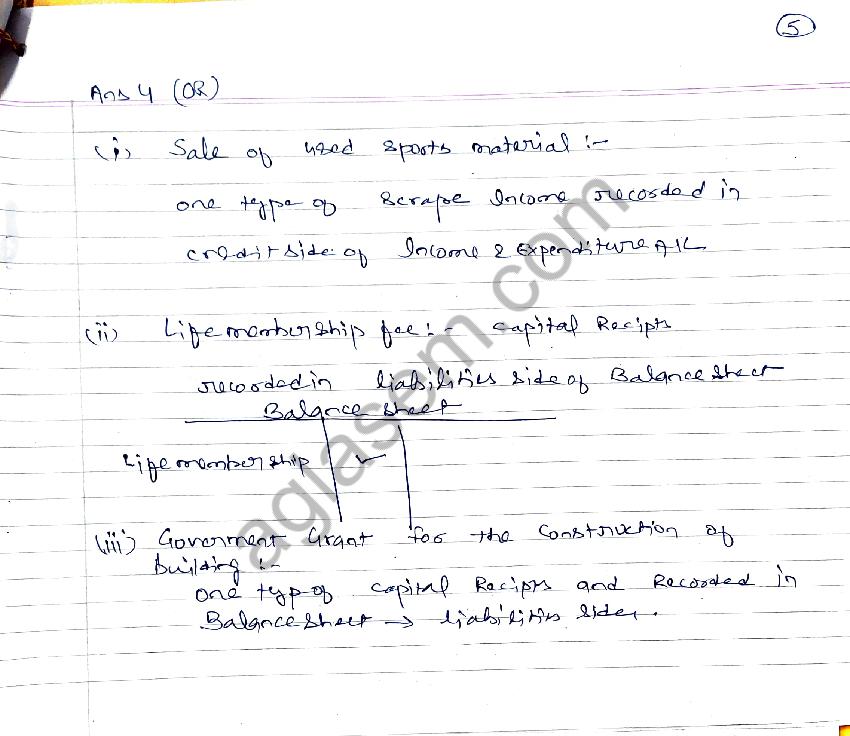 5
Ans 4 (OR)
(i) Sale of used sports material :-
one type of scrape Income recorded in
credit side of Income & Expenditure A/C
(ii) Life membership fee :- Capital Recipts
recorded in liabilities side of Balance Sheet
Balance Sheet
Life membership ✓
(iii) Goverment Grant for the construction of
building :-
one typ of capital Recipts and Recorded in
Balance Sheet → liabilities side.
aglasem.com